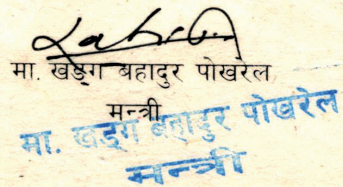 मा. खड्ग बहादुर पोखरेल
मन्त्री
मा. खड्ग बहादुर पोखरेल
मन्त्री